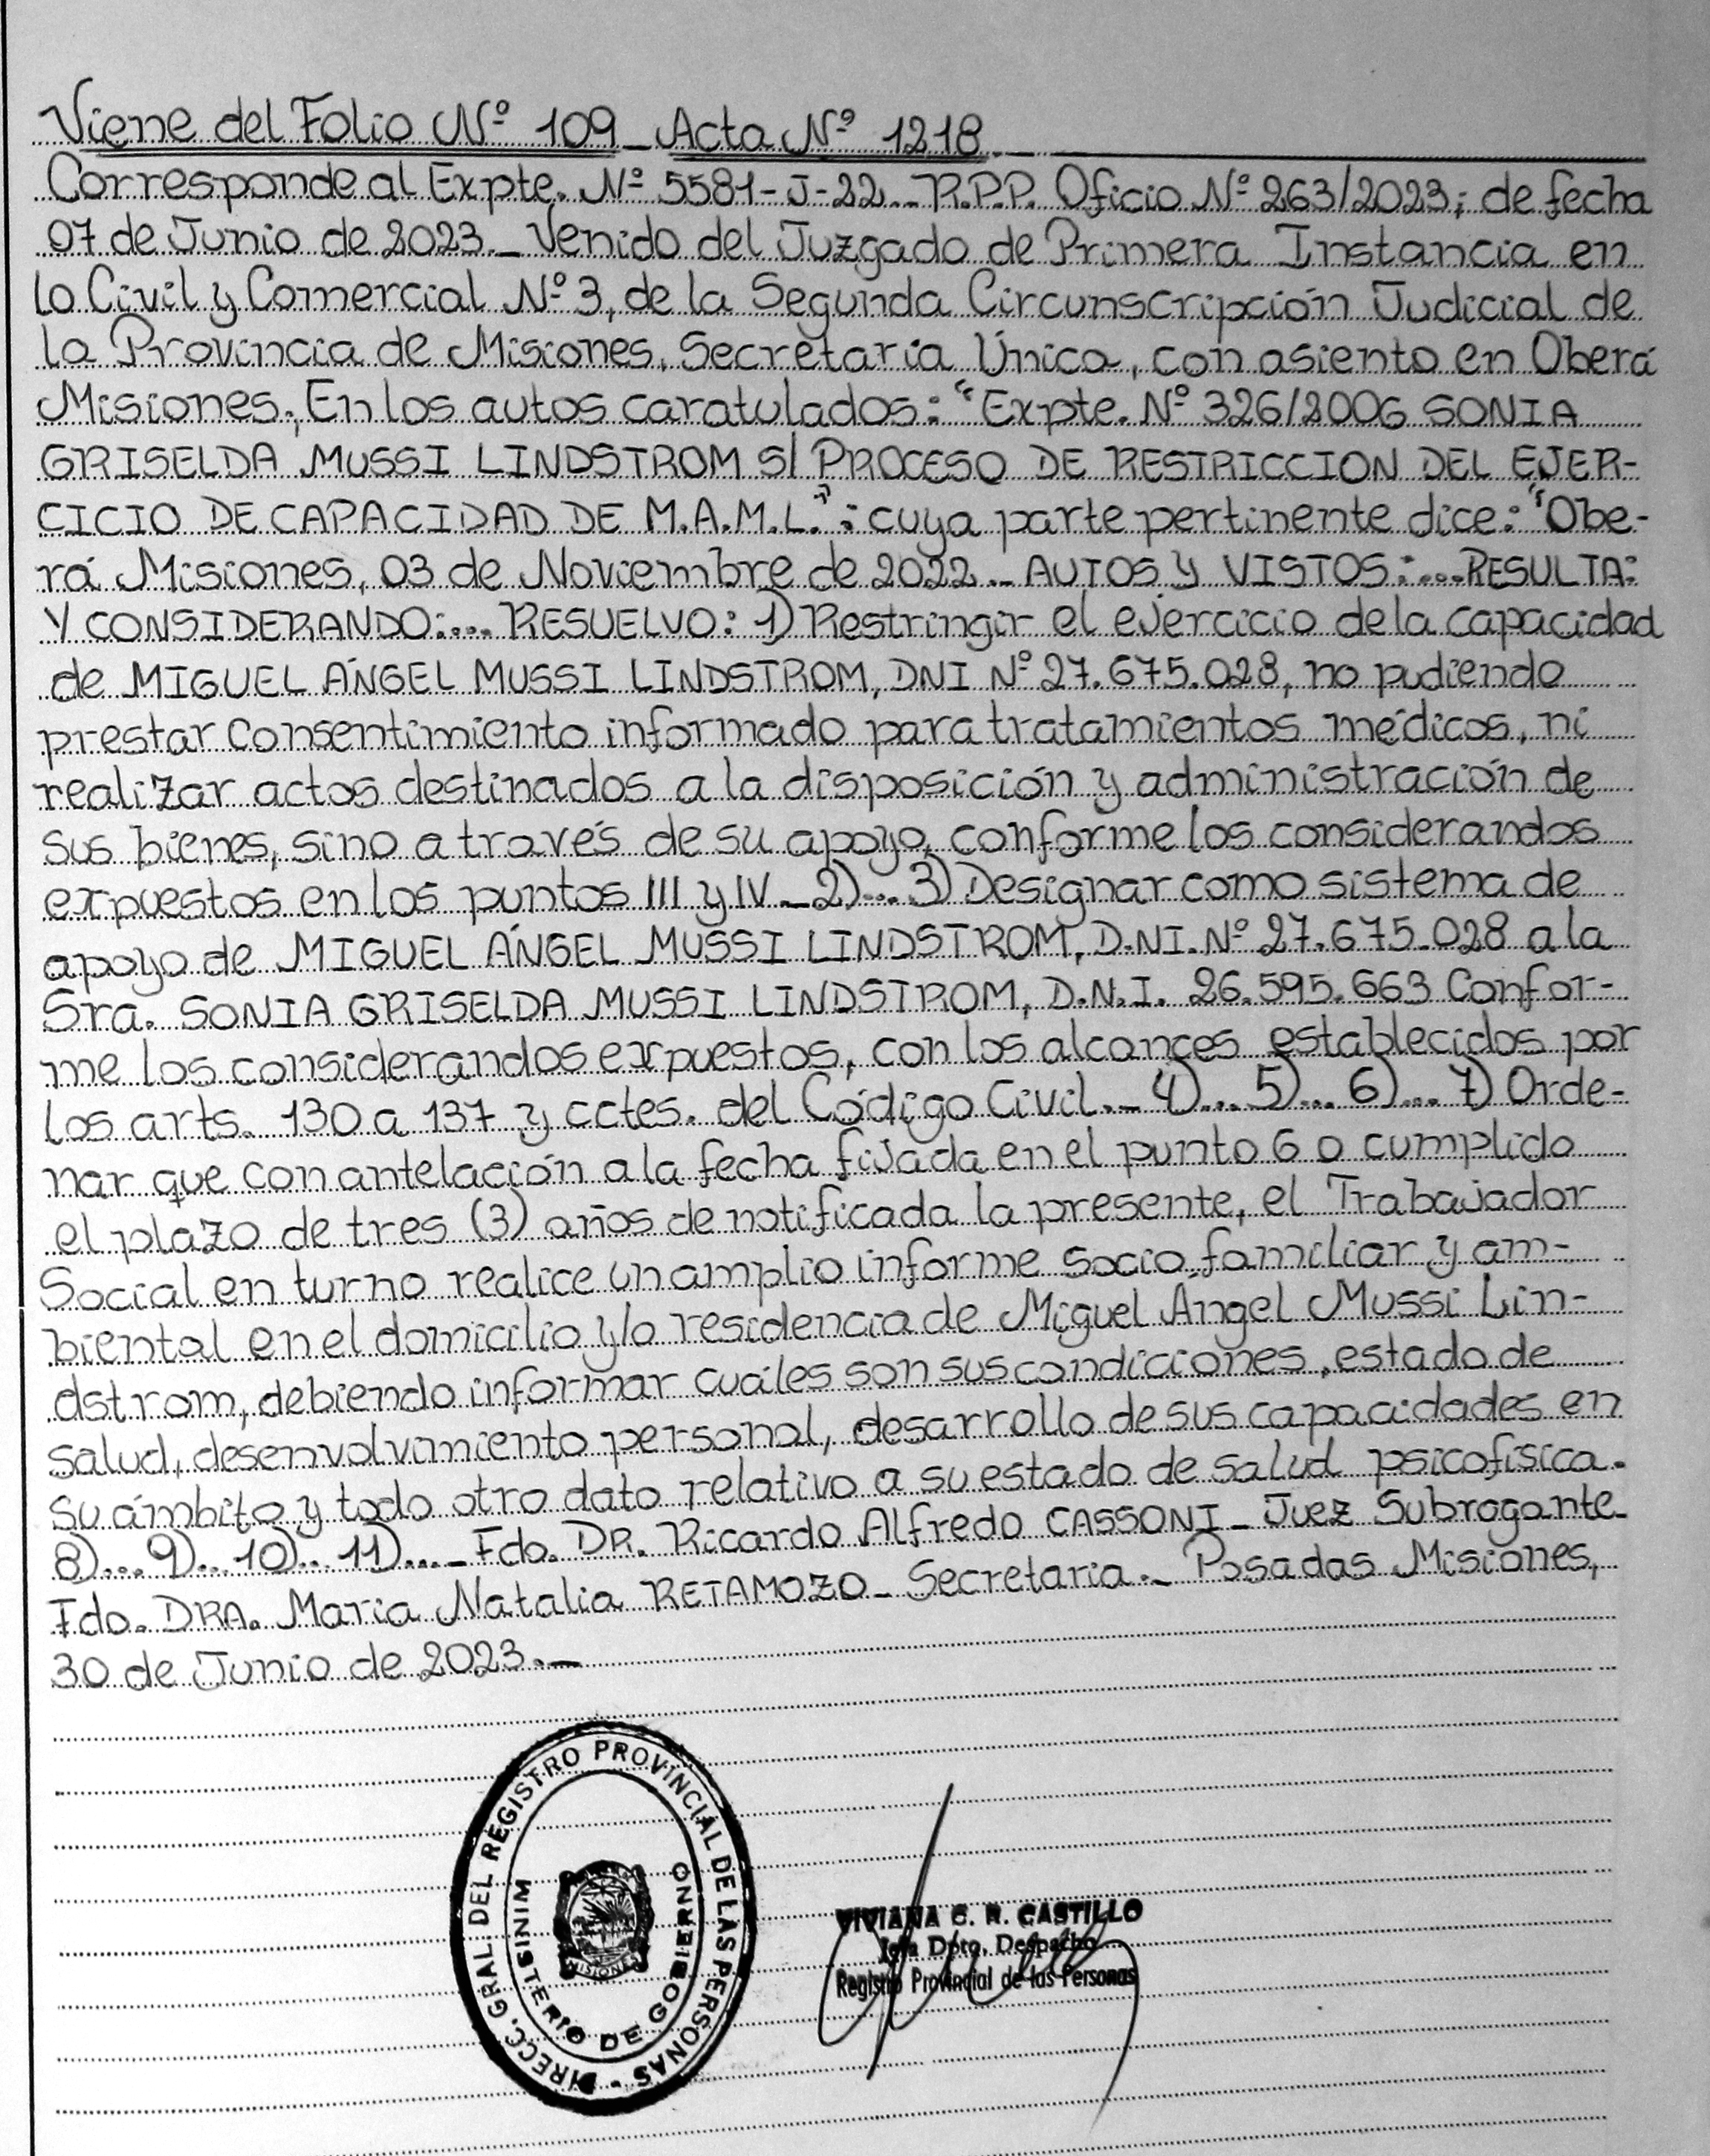 Viene del Folio Nº 109_Acta Nº 1218
Corresponde al Expte. Nº 5581-J-22._R.P.P. Oficio Nº 263/2023; de fecha
07 de Junio de 2023._ Venido del Juzgado de Primera Instancia en
lo Civil y Comercial Nº 3, de la Segunda Circunscripción Judicial de
la Provincia de Misiones, Secretaría Única, con asiento en Oberá
Misiones; En los autos caratulados: "Expte. Nº 326/2006 SONIA
GRISELDA MUSSI LINDSTROM S/ PROCESO DE RESTRICCION DEL EJER-
CICIO DE CAPACIDAD DE M.A.M.L.": cuya parte pertinente dice: "Obe-
rá Misiones, 03 de Noviembre de 2022._ AUTOS Y VISTOS:...RESULTA:
Y CONSIDERANDO:... RESUELVO: 1) Restringir el ejercicio de la capacidad
de MIGUEL ÁNGEL MUSSI LINDSTROM, DNI Nº 27.675.028, no pudiendo
prestar consentimiento informado para tratamientos médicos, ni
realizar actos destinados a la disposición y administración de
sus bienes, sino a través de su apoyo, conforme los considerandos
expuestos en los puntos III y IV_2)... 3) Designar como sistema de
apoyo de MIGUEL ÁNGEL MUSSI LINDSTROM, D.NI. Nº 27.675.028 a la
Sra. SONIA GRISELDA MUSSI LINDSTROM, D.N.I. 26.595.663 Confor-
me los considerandos expuestos, con los alcances establecidos por
los arts. 130 a 137 y cctes. del Código Civil._ 4)... 5)... 6)... 7) Orde-
nar que con antelación a la fecha fijada en el punto 6 o cumplido
el plazo de tres (3) años de notificada la presente, el Trabajador
Social en turno realice un amplio informe socio familiar y am-
biental en el domicilio y/o residencia de Miguel Ángel Mussi Lin-
dstrom, debiendo informar cuáles son sus condiciones, estado de
salud, desenvolvimiento personal, desarrollo de sus capacidades en
su ámbito y todo otro dato relativo a su estado de salud psicofísica.
8)... 9)... 10)... 11)..._ Fdo. DR. Ricardo Alfredo CASSONI_ Juez Subrogante_
Fdo. DRA. Maria Natalia RETAMOZO_ Secretaria._ Posadas Misiones,
30 de Junio de 2023._
DIRECC. GRAL. DEL REGISTRO PROVINCIAL DE LAS PERSONAS -
MINISTERIO DE GOBIERNO
MISIONES
VIVIANA C. R. CASTILLO
Jefa Dpto. Despacho
Registro Provincial de las Personas